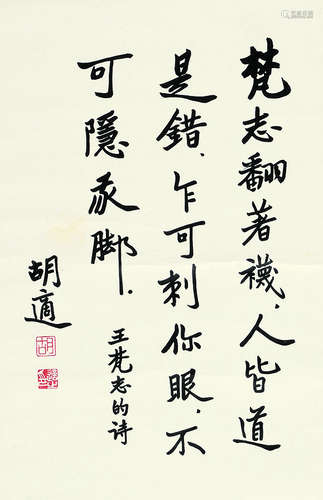 梵志翻著襪，人皆道
是錯、乍可刺你眼，不
可隱我脚．
王梵志的诗
胡適
胡